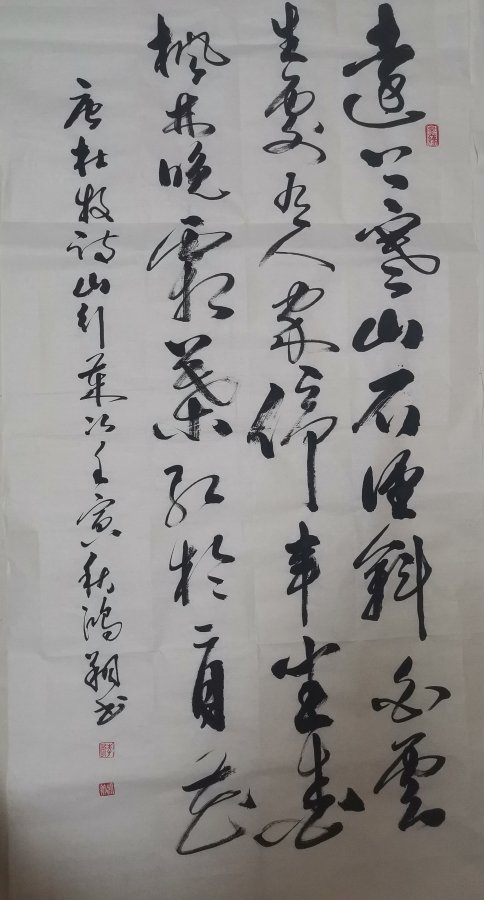 遠上寒山石徑斜白雲
生處有人家停車坐愛
楓林晚霜葉紅於二月花
唐杜牧詩山行歲次壬寅秋鴻翔書